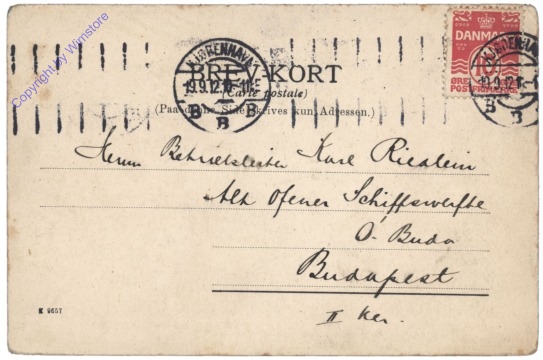 Copyright by Wimstore
KJØBENHAVN
19.9.12.
B B B
DANMARK
10
ØRE
POSTFRIMÆRKE
KJØBENHAVN
19.9.12.
B B
BREVKORT
(Carte postale)
(Paa denne Side skrives kun Adressen.)
Herrn Betriebsleiter Karl
Alt Ofener Schiffswerfte
Ó-Buda
Budapest
II Ker.
K 9657